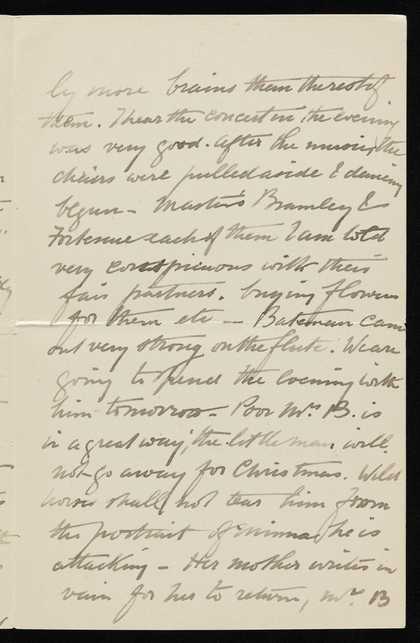 ly more brains than the rest of
them. I hear the concert in the evening
was very good. After the music, the
chairs were pulled aside & dancing
begun - Masters Bramley &
Fortescue each of them I am told
very conspicuous with their
fair partners. buying flowers
for them etc -- Bateman came
out very strong on the flute. We are
going to spend the evening with
him tomorrow - Poor Mrs B. is
in a great way, the little man will
not go away for Christmas. Wild
horses shall not tear him from
the portrait of Minna he is
attacking - Her mother writes in
vain for her to return, Mr B